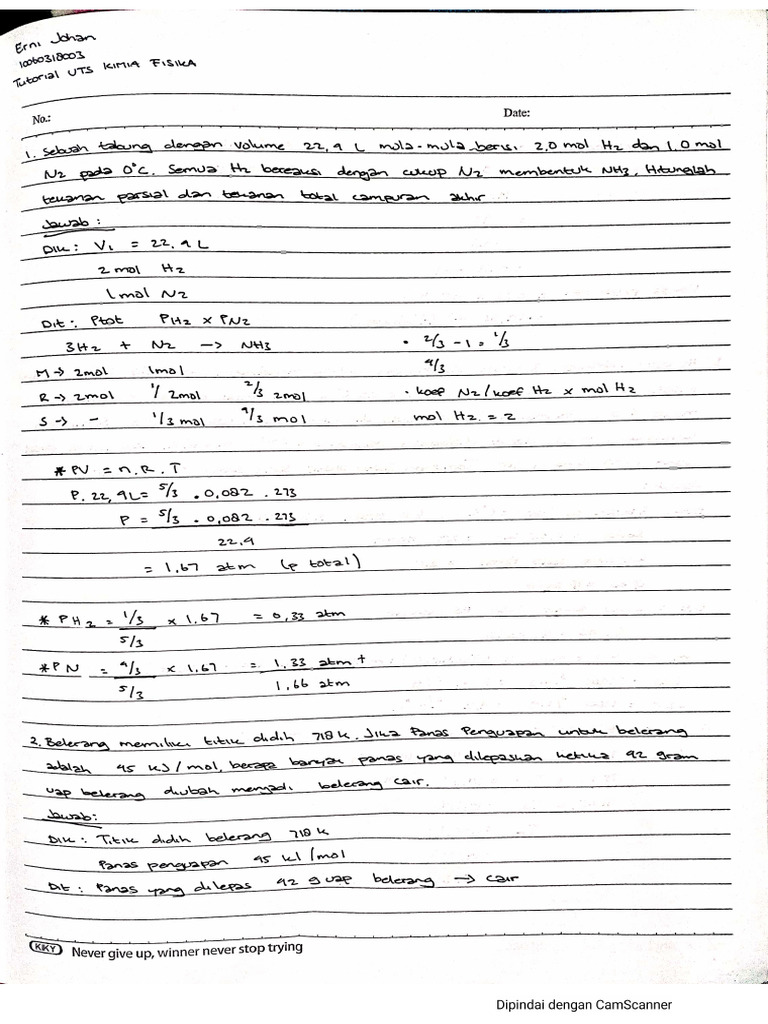 Erni Johan
10060318003
Tutorial UTS KIMIA FISIKA
No.: Date:
1. Sebuah tabung dengan volume 22,4 L mula-mula berisi 2,0 mol H2 dan 1,0 mol
N2 pada 0°C. Semua H2 bereaksi dengan cukup N2 membentuk NH3. Hitunglah
tekanan parsial dan tekanan total campuran akhir
Jawab :
Dik : V1 = 22,4 L
2 mol H2
1 mol N2
Dit : Ptot PH2 x PN2
3H2 + N2 -> NH3 • 2/3 - 1 = 1/3
M -> 2mol 1mol 4/3
R -> 2mol 1/ 2mol 2/3 2mol • koef N2/koef H2 x mol H2
S -> - 1/3 mol 4/3 mol mol H2 = 2
* PV = n.R.T
P. 22,4L = 5/3 . 0,082 . 273
P = 5/3 . 0,082 . 273
22.4
= 1,67 atm (p total)
* PH2 = 1/3 x 1,67 = 0,33 atm
5/3
* PN = 4/3 x 1.67 = 1.33 atm +
5/3 1,66 atm
2. Belerang memiliki titik didih 718 K. Jika Panas Penguapan untuk belerang
adalah 45 kJ/mol, berapa banyak panas yang dilepaskan ketika 42 gram
uap belerang diubah menjadi belerang cair.
Jawab:
Dik : Titik didih belerang 718 K
Panas penguapan 45 kJ/mol
Dit : Panas yang dilepas 42 g uap belerang -> cair
KKY Never give up, winner never stop trying
Dipindai dengan CamScanner